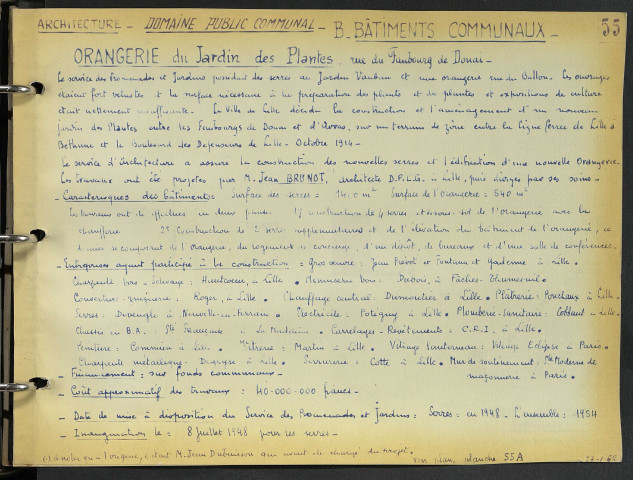 ARCHITECTURE - DOMAINE PUBLIC COMMUNAL - B. BÂTIMENTS COMMUNAUX - 55
ORANGERIE du Jardin des Plantes, rue du Faubourg de Douai -
Le service des Promenades et Jardins possédait des serres au Jardin Vauban et une orangerie rue du Ballon. Ces ouvrages
étaient fort vétustes et la surface nécessaire à la préparation des plants et de plantes et expositions de culture
était nettement insuffisante. La Ville de Lille décida la construction et l'aménagement d'un nouveau
Jardin des Plantes entre les Faubourgs de Douai et d'Arras, sur un terrain de zône entre la ligne ferrée de Lille à
Béthune et le Boulevard des Défenseurs de Lille - Octobre 1914 -
Le service d'Architecture a assuré la construction des nouvelles serres et l'édification d'une nouvelle Orangerie.
Les travaux ont été projetés par M. Jean BRUNOT, architecte D.P.L.G. à Lille, puis dirigés par ses soins -
- Caractéristiques des bâtiments: Surface des serres = m² Surface de l'orangerie = 540 m²
Les travaux ont été effectués en deux phases: 1º construction de 4 serres et sous-sol de l'orangerie avec la
chaufferie. 2º Construction de 2 serres supplémentaires et de l'élévation du bâtiment de l'orangerie,
de l'orangerie, du logement de concierge, d'un dépôt, de bureaux et d'une salle de conférences.
- Entreprises ayant participé à la construction = Gros œuvre: Jean Frévot et à Lille.
Charpente bois - : à Lille • Menuiserie bois: Dubois, à Fâches-Thumesnil •
Couverture-zinguerie: Roger, à Lille • Chauffage central: Dumoutiers à Lille • Plâtrerie: à Lille -
Serres: à Neuville-en-Ferrain • Électricité: à Lille • Plomberie-Sanitaire: à Lille -
Chassis en B.A.: Sté à La Madeleine • Carrelages-Revêtements: C.R.I. à Lille •
Peinture: à Lille • Vitrerie: Martin à Lille • Vitrage : Eclipse à Paris •
Charpente métallique: à Lille • Serrurerie: Cotte à Lille • Mur de soutènement: Moderne de
- Financement: sur fonds communaux - maçonnerie à Paris •
- Coût approximatif des travaux: 40.000.000 francs -
- Date de mise à disposition du Service des Promenades et Jardins: Serres: en 1948 - L'ensemble: 1954
- Inauguration le: 8 Juillet 1948 pour les serres -
à l'origine, c'était M. Jean Dubuisson qui avait été chargé du projet. voir plan, planche 55A